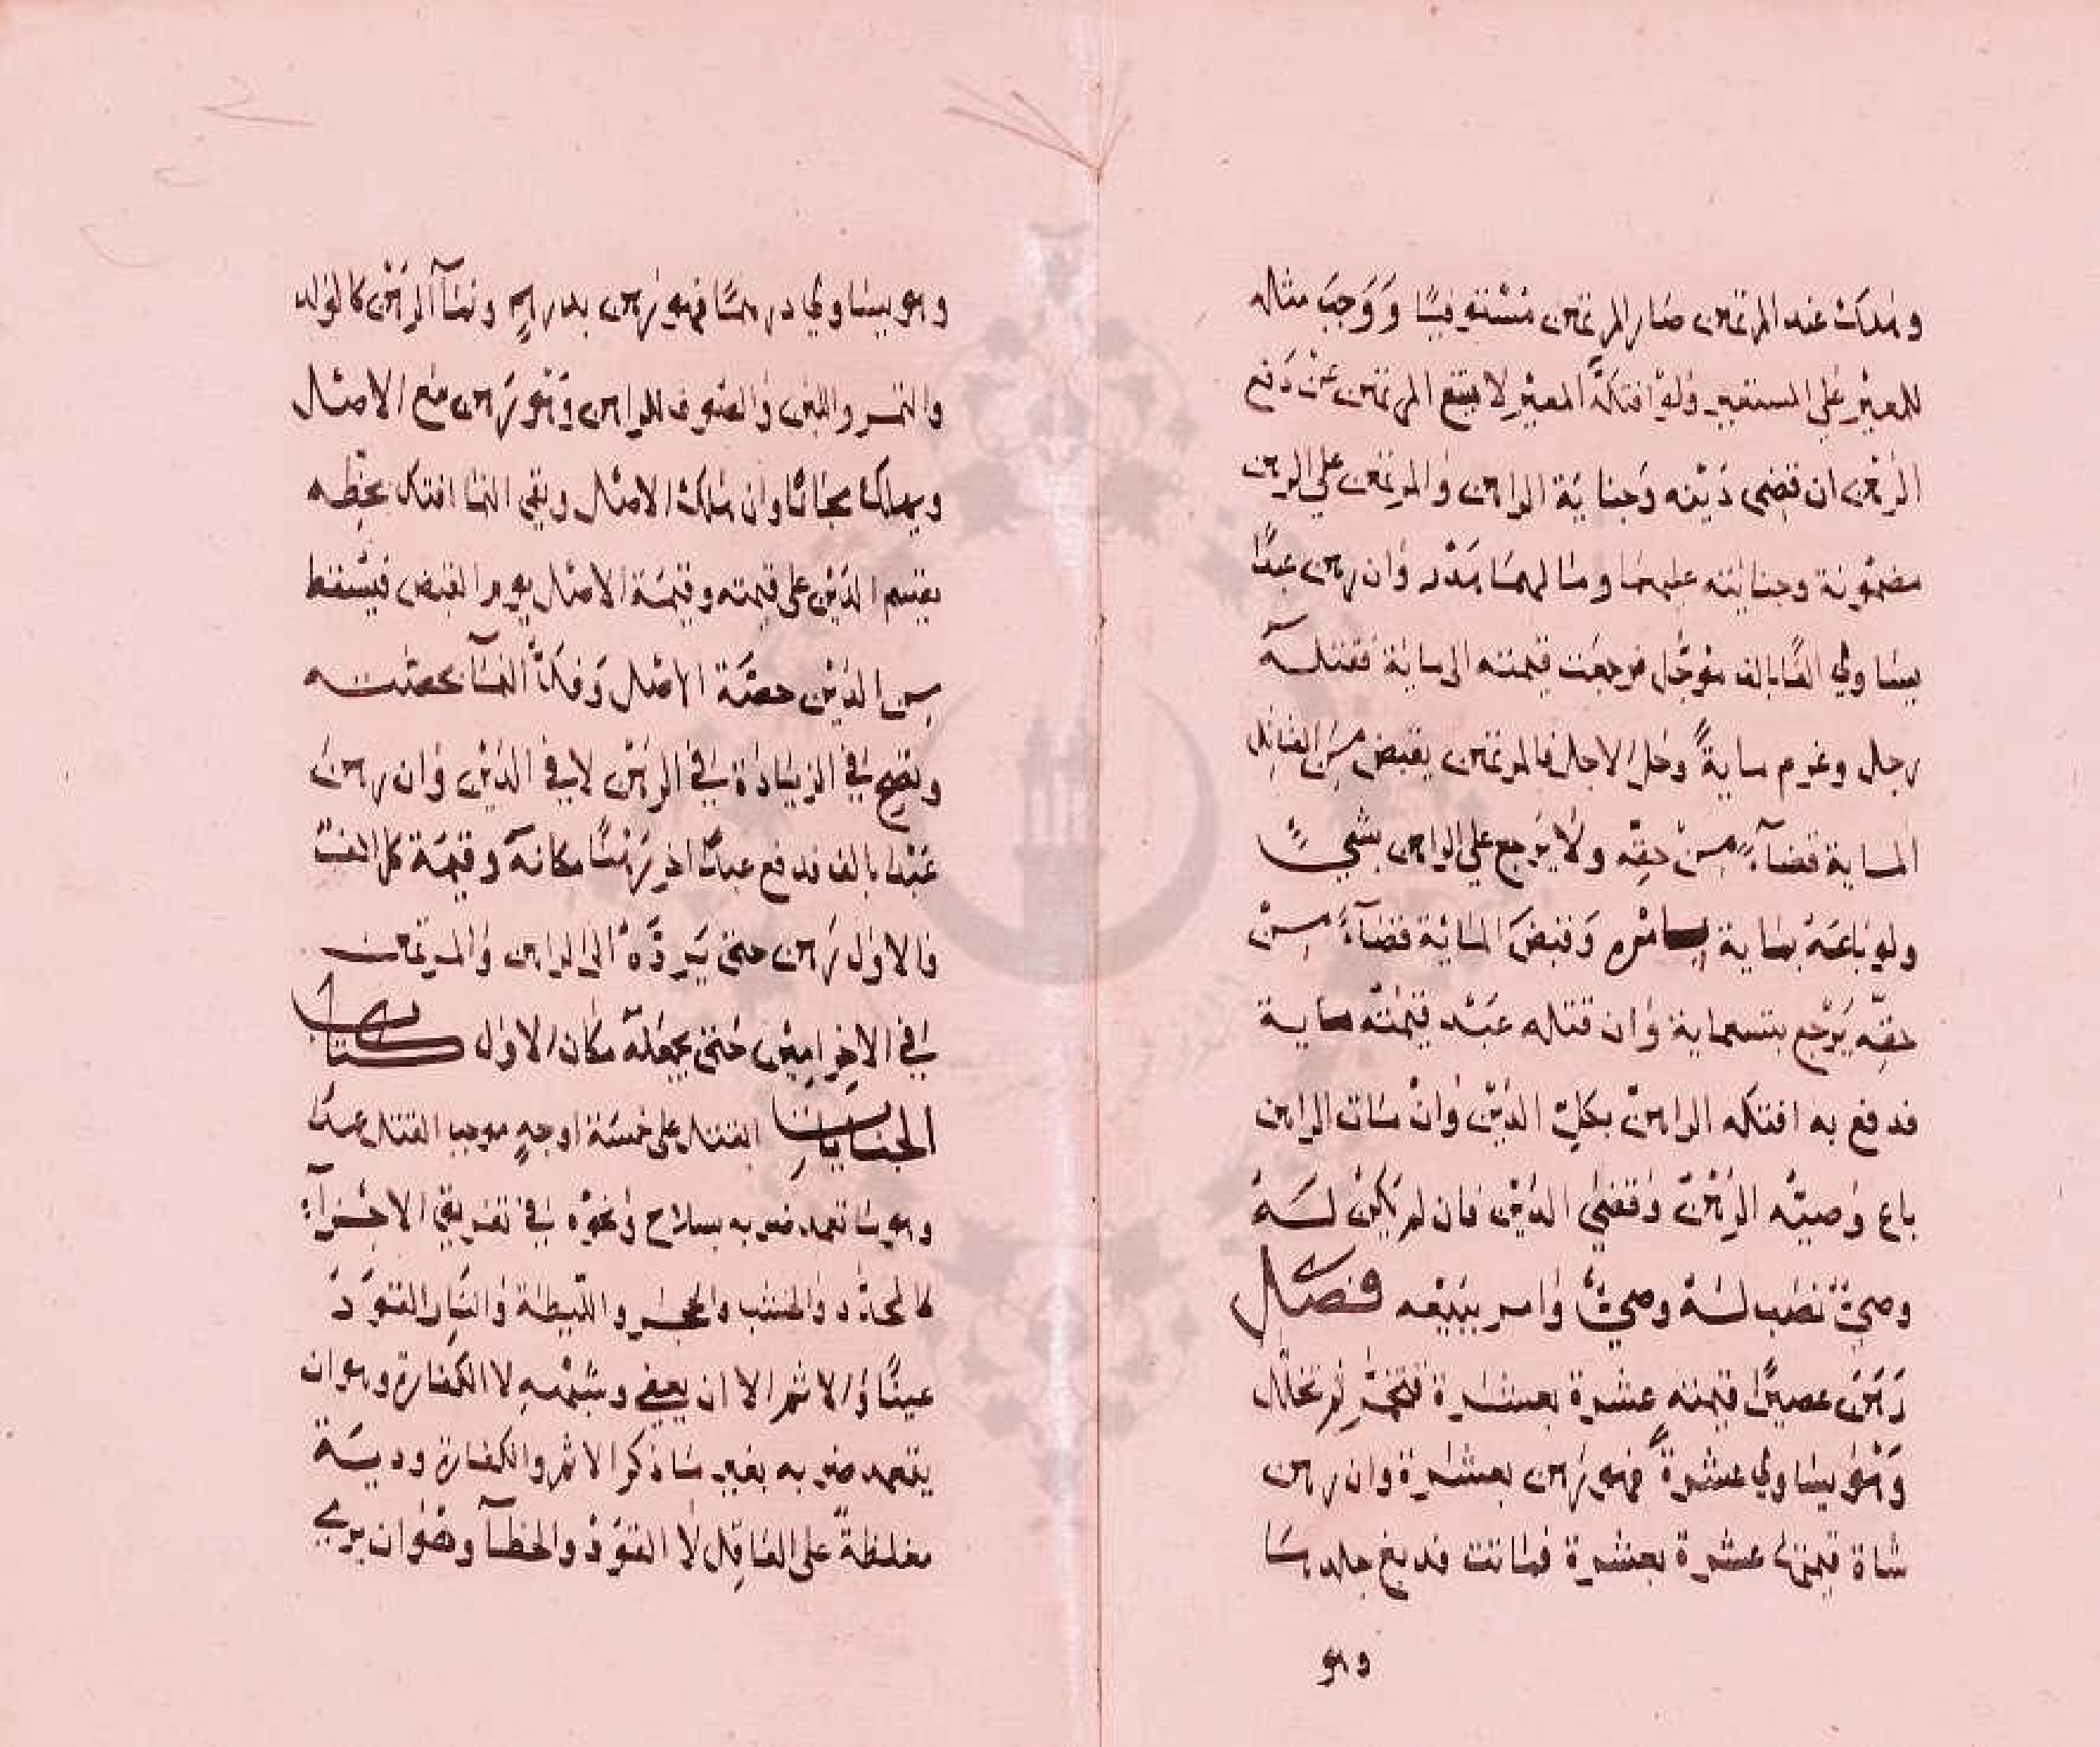 وهلك عند المرتهن صار المرتهن مستوفيًا وَوَجَبَ مثله
للمعير على المستعير ولو افتكّهُ المعير لا يمتنع المرتهن عن دَفع
الرهن ان قضى دَيْنه وجناية الراهن والمرتهن على الرهن
مضمونة وجنايته عليهما ومالهما هَدْر وان رهن عبدًا
يساوي الفًا بالف مؤجّل فرجعت قيمته الى ماية فقتله
رجل وغرم مايةً وحل الاجل فالمرتهن يقبض من القاتل
الماية قضآءً من حقِّه ولا يرجع على الراهن بشيءٍ
ولو باعَهُ بماية بامره وَقبضَ الماية قضآءً مِنْ
حقِّه يَرْجع بتسعماية وان قتله عَبْد قيمته ماية
فدفع به افتكه الراهنُ بكلِّ الدَيْن وانْ مات الراهن
باع وصيُّه الرَهْنَ وقضى الدَيْن فان لم يَكن لَهُ
وصيٌ نصب لهُ وصيٌّ وامر ببَيْعه فصل
رَهَنَ عصيرًا قيمته عشرة بعشرة فتخمّر ثم تخلّل
وَهْوَ يساوي عشرةً فهو رَهن بعشرة وان رهن
شاة قيمتها عشرة بعشرة فماتت فدبغ جلدها
وهو
وهو يساوي درهمًا فهو رَهن بدرهمٍ ونمآ الرَهْن كالولد
والثمر واللبن والصوف للراهن وَهْوَ رَهن مَع الاصل
ويهلك مجانًا وان هلك الاصل وبقي النما افتك بحظّه
يقسم الدَيْن على قيمته وقيمة الاصل يوم القبض فيسقط
من الدَيْن حصّة الاصل وَفكّ النمآ بحصّته
وتصح في الزيادة في الرهن لا في الدَيْن وان رهن
عَبْدا بالف فدفع عبدًا اخر رَهْنًا مكانهُ وقيمة كل الف
فالاول رَهن حتى يَردّهُ الى الراهن والمرتهن
في الاخر امين حَتى يجعلهُ مكان الاول كتاب
الجنايات القتل على خمسة اوجهٍ موجب القتل عمدًا
وهو ما تعمد ضربه بسلاح ونحوْه في تفريق الاجزآء
كالمحدّد والخشب والحجر والليطة والنار القَوَدُ
عينًا والاثم الا ان يعفى وشبْهه لا الكفارة وهو ان
يتعمد ضربه بغير ما ذكر الاثم والكفارة ودية
مغلظةٌ على العاقلة لا القَوَدُ والخطآ وهْو ان يرمي